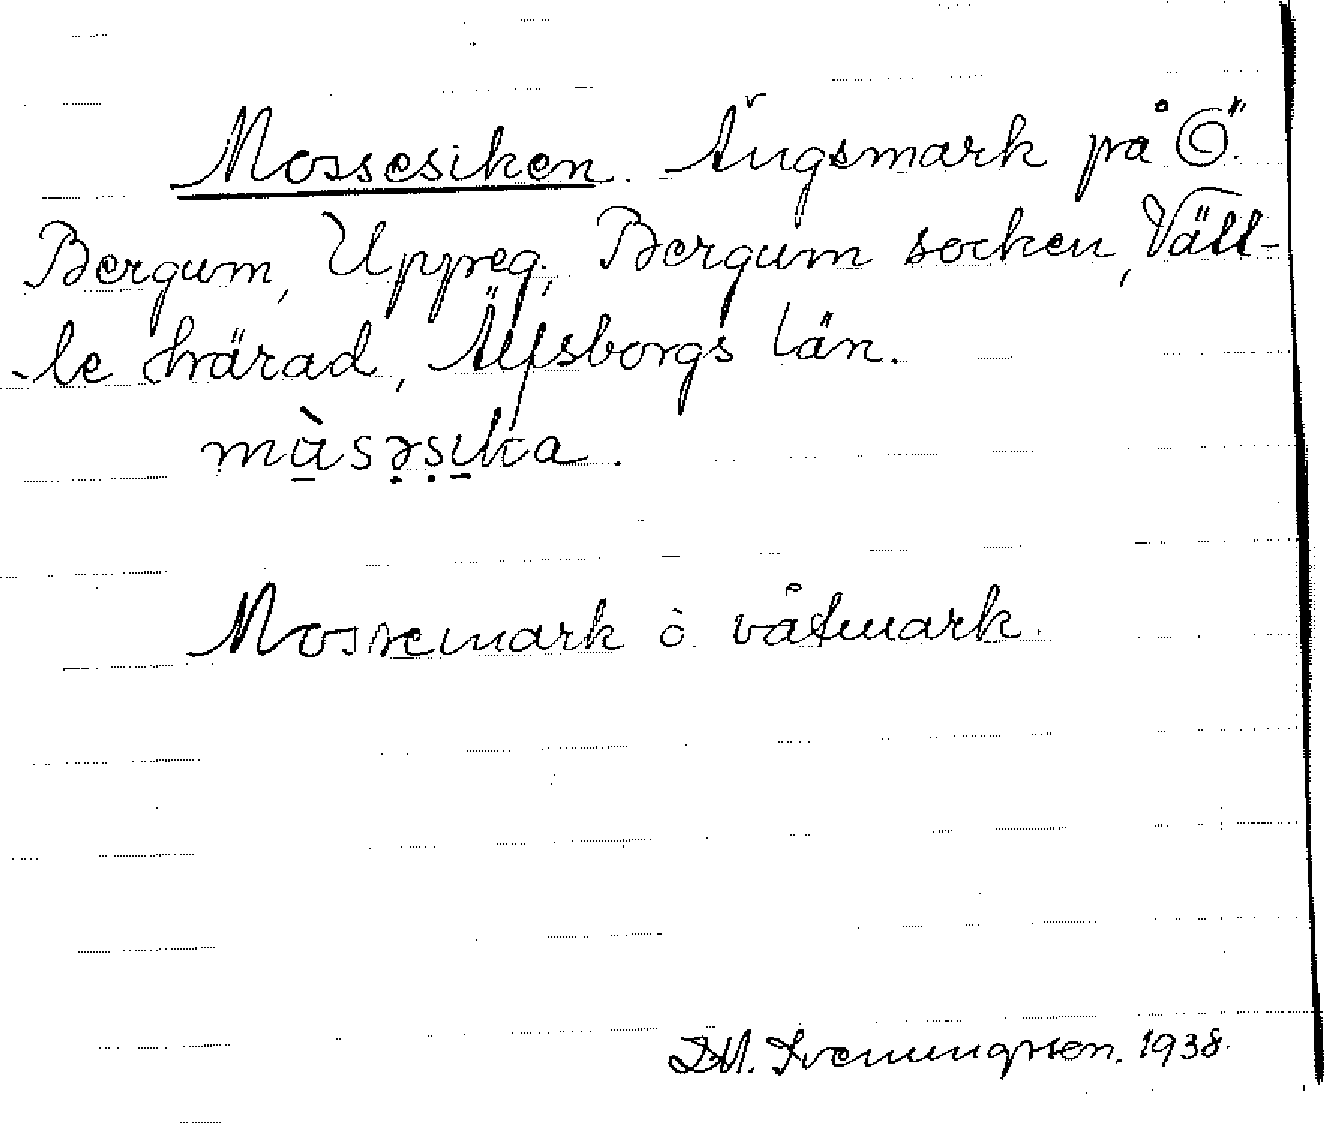 Mossesiken. Ängsmark på Ö.
Bergum, Uppreg., Bergum socken, Vätt-
-le härad, Älfsborgs län.
mɑ̀sәsika.
Mossemark ò våtmark.
D.M. Svenungsson. 1938.